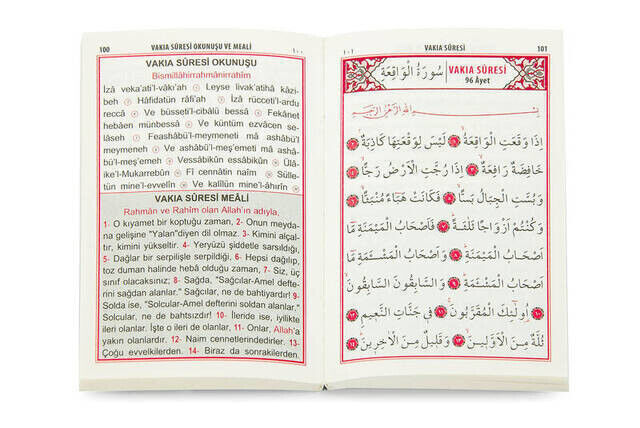 100 VAKIA SÛRESİ OKUNUŞU VE MEALİ
VAKIA SÛRESİ OKUNUŞU
Bismillâhirrahmânirrahîm
İzâ veka'ati'l-vâkı'ah ① Leyse livak'atihâ kâzi-
beh ② Hâfidatün râfi'ah ③ İzâ rücceti'l-ardu
reccâ ④ Ve büsseti'l-cibâlü bessâ ⑤ Fekânet
hebâen münbessâ ⑥ Ve küntüm ezvâcen se-
lâseh ⑦ Feashâbü'l-meymeneti mâ ashâbü'l-
meymeneh ⑧ Ve ashâbü'l-meş'emeti mâ ashâ-
bü'l-meş'emeh ⑨ Vessâbikûn essâbikûn ⑩ Ülâ-
ike'l-Mukarrebûn ⑪ Fî cennâtin naîm ⑫ Sülle-
tün mine'l-evvelîn ⑬ Ve kalîlün mine'l-âhirîn ⑭
VAKIA SÛRESİ MEÂLİ
Rahmân ve Rahîm olan Allah'ın adıyla,
1- O kıyamet bir koptuğu zaman, 2- Onun meyda-
na gelişine "Yalan"diyen dil olmaz. 3- Kimini alçal-
tır, kimini yükseltir. 4- Yeryüzü şiddetle sarsıldığı,
5- Dağlar bir serpilişle serpildiği, 6- Hepsi dağılıp,
toz duman halinde hebâ olduğu zaman, 7- Siz, üç
sınıf olacaksınız; 8- Sağda, "Sağcılar-Amel defte-
rini sağdan alanlar." Sağcılar, ne de bahtiyardır! 9-
Solda ise, "Solcular-Amel defterini soldan alanlar."
Solcular, ne de bahtsızdır! 10- İleride ise, iyilikte
ileri olanlar. İşte o ileri de olanlar, 11- Onlar, Allah'a
yakın olanlardır. 12- Naim cennetlerindedirler. 13-
Çoğu evvelkilerden. 14- Biraz da sonrakilerden.
١٠١ VAKIA SÛRESİ 101
سُورَةُ الْوَاقِعَةِ VAKIA SÛRESİ
96 Âyet
بِسْمِ اللهِ الرَّحْمٰنِ الرَّحِيمِ
اِذَا وَقَعَتِ الْوَاقِعَةُ ١ لَيْسَ لِوَقْعَتِهَا كَاذِبَةٌ ٢
خَافِضَةٌ رَافِعَةٌ ٣ اِذَا رُجَّتِ الْاَرْضُ رَجًّا ٤
وَبُسَّتِ الْجِبَالُ بَسًّا ٥ فَكَانَتْ هَبَاءً مُنْبَثًّا ٦
وَكُنْتُمْ اَزْوَاجًا ثَلٰثَةً ٧ فَاَصْحَابُ الْمَيْمَنَةِ مَا
اَصْحَابُ الْمَيْمَنَةِ ٨ وَاَصْحَابُ الْمَشْئَمَةِ مَا
اَصْحَابُ الْمَشْئَمَةِ ٩ وَالسَّابِقُونَ السَّابِقُونَ
١٠ اُولٰئِكَ الْمُقَرَّبُونَ ١١ فِي جَنَّاتِ النَّعِيمِ ١٢
ثُلَّةٌ مِنَ الْاَوَّلِينَ ١٣ وَقَلِيلٌ مِنَ الْاٰخِرِينَ ١٤